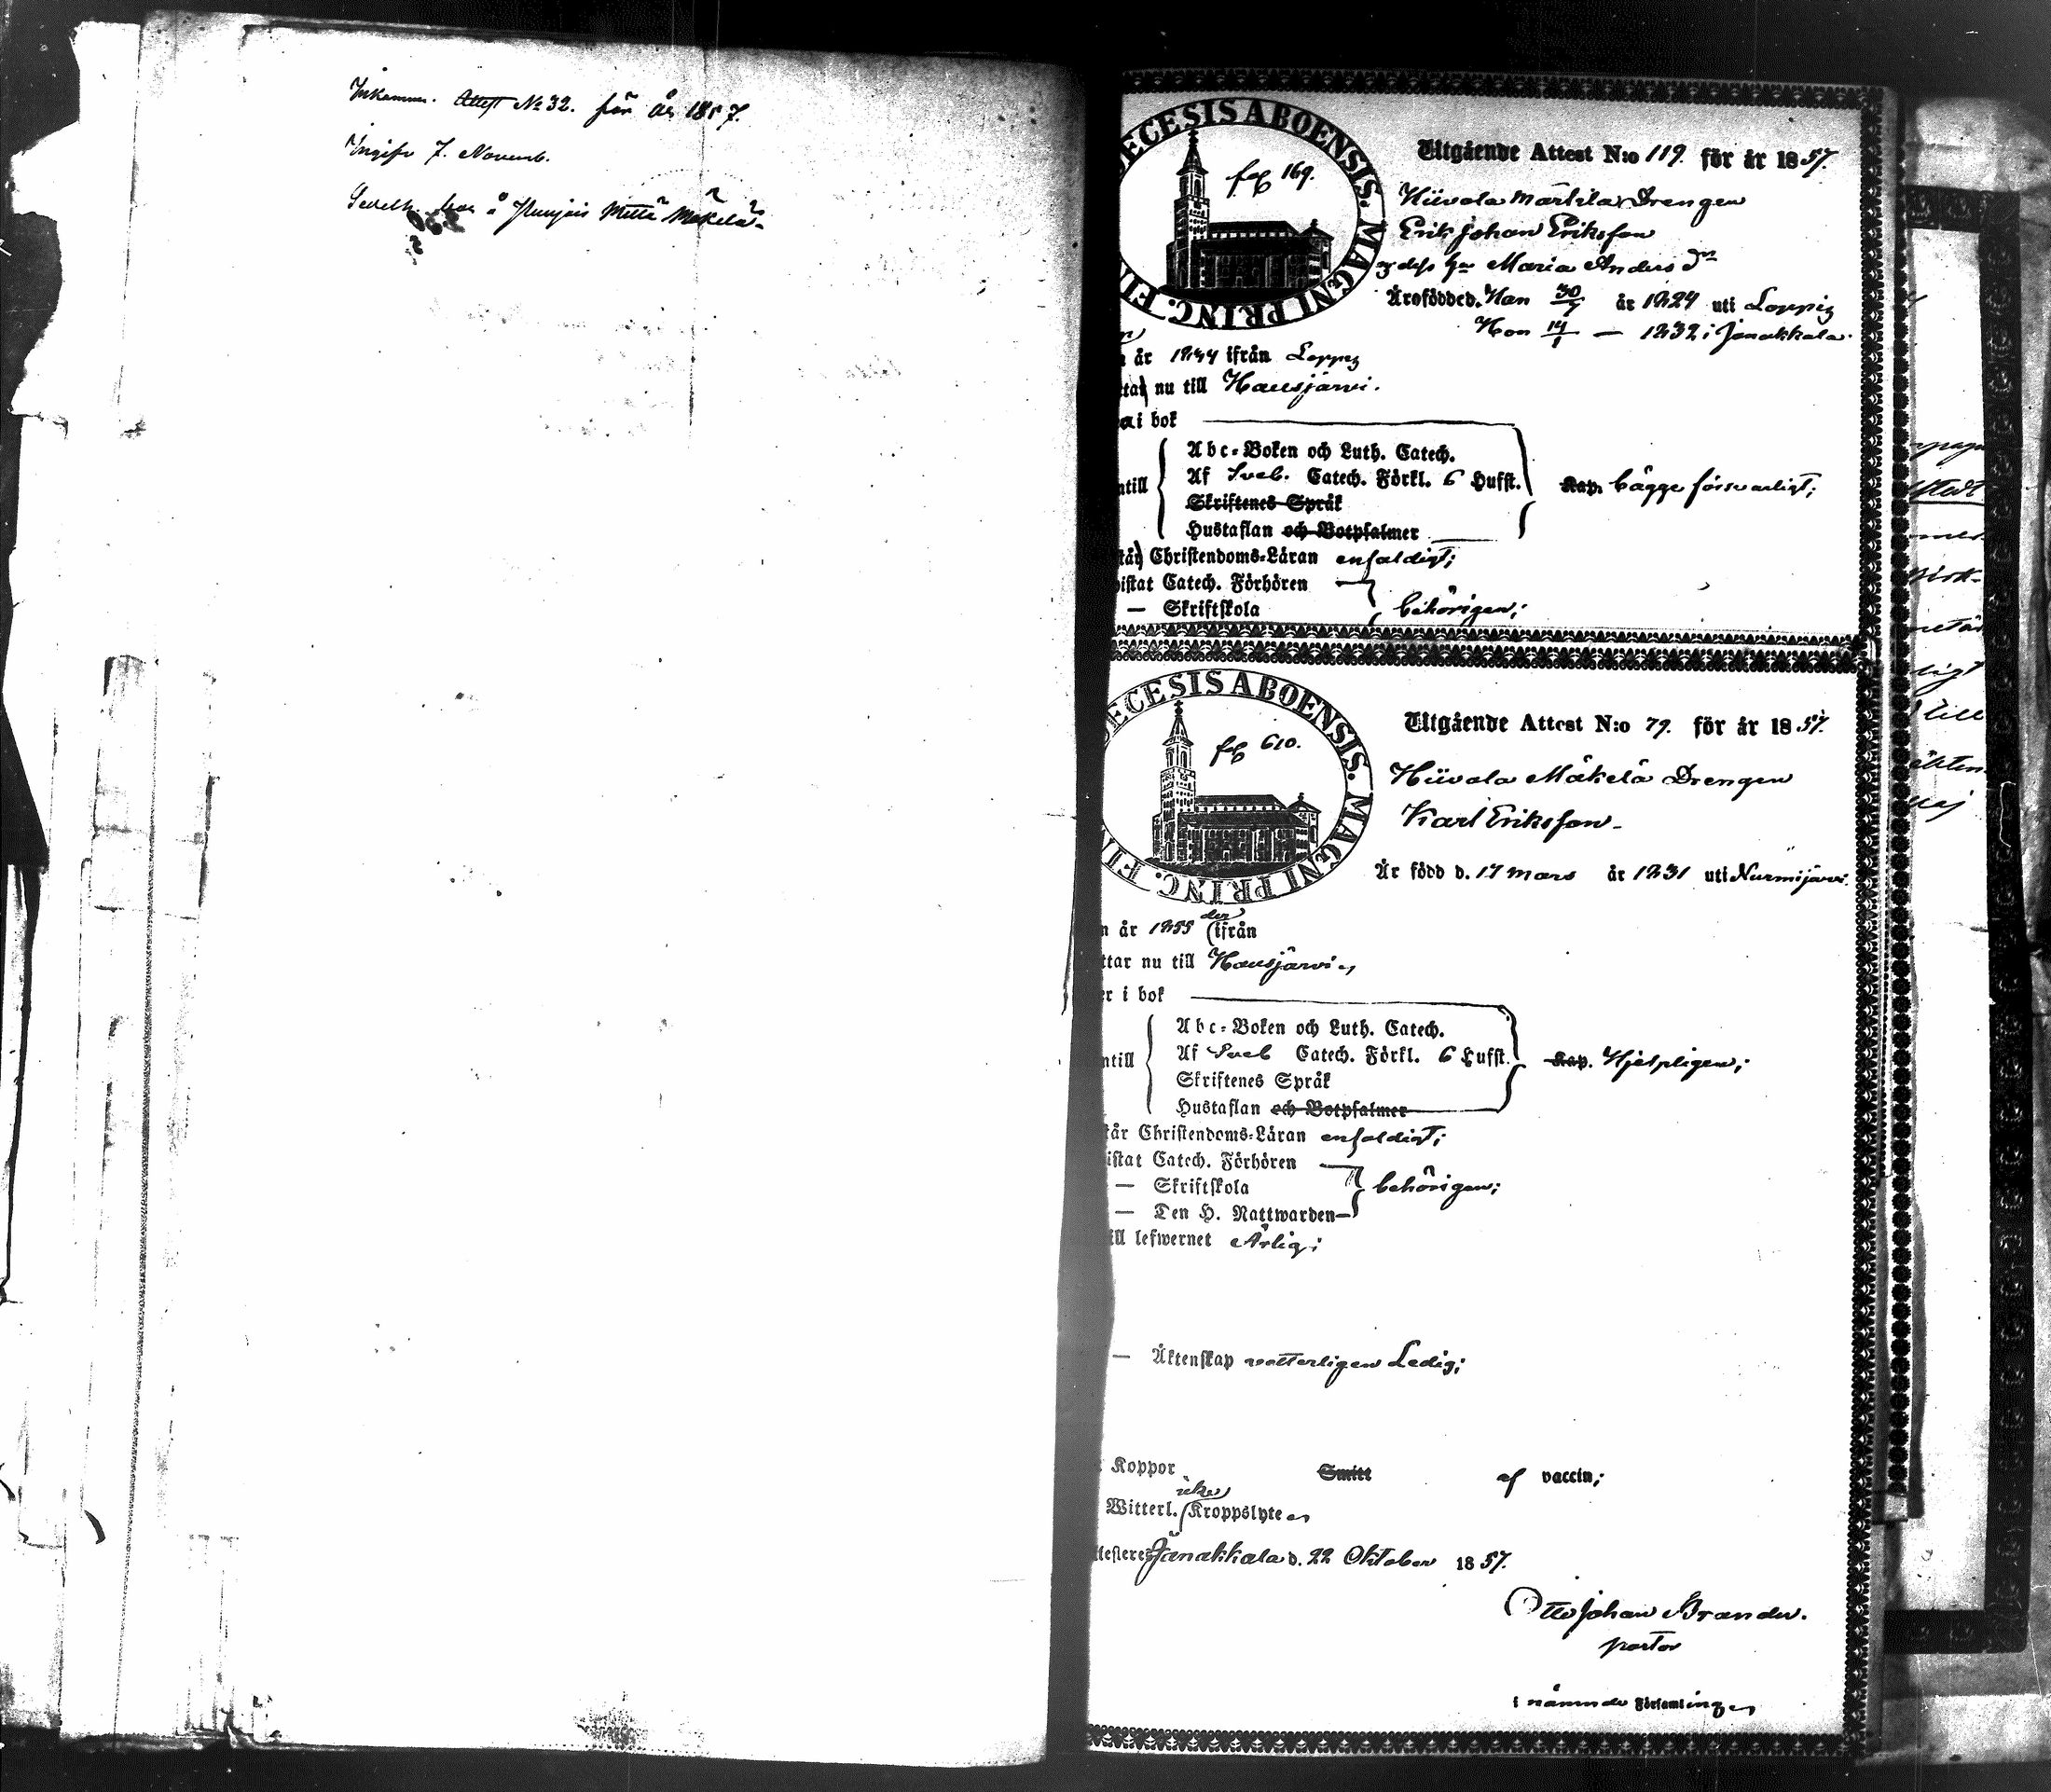 Inkommen. Attest No 32. för år 1857.
Ingifv 7. Novemb.
Sedeln hos å Punjois Mattä Mäkelä.
ECESIS ABOENSIS. MAGNI PRINC. FIN
fol 169.
Utgående Attest N:o 119. för år 1857.
Hiivola Marttila Drengen
Erik Johan Eriksson
och dess hu Maria Anders dr
Äro födde d. Han 30/7 år 1824 uti Loppis
Hon 14/1 — 1832 i Janakkala.
år 1844 ifrån Loppis
ttar nu till Hausjärvi.
a i bok
Abc-Boken och Luth. Catech.
ntill Af Sveb. Catech. Förkl. 6 Hufst. Kap. bägge försvarligt;
Skriftenes Språk
Hustaflan och Botpsalmer
tår Christendoms-Läran enfaldigt;
istat Catech. Förhören
— Skriftskola behörigen;
ECESIS ABOENSIS. MAGNI PRINC. FIN
fol 610.
Utgående Attest N:o 79. för år 1857.
Hiivola Mäkelä Drengen
Karl Eriksson
Är född d. 17 Mars år 1831 uti Nurmijärvi.
n år 1855 der ifrån
ttar nu till Hausjärvi
er i bok
Abc-Boken och Luth. Catech.
ntill Af Sveb Catech. Förkl. 6 Hufst. Kap. Hjelpligen;
Skriftenes Språk
Hustaflan och Botpsalmer
tår Christendoms-Läran enfaldigt;
istat Catech. Förhören
— Skriftskola behörigen;
— Den H. Nattwarden
ill lefwernet Ärlig;
— Äktenskap vetterligen Ledig;
Koppor Smitt af vaccin;
Witterl. icke Kroppslyte
ttesteres Janakkala d. 22 Oktober 1857.
Otto Johan Brander.
pastor
i nämnde Församlingen